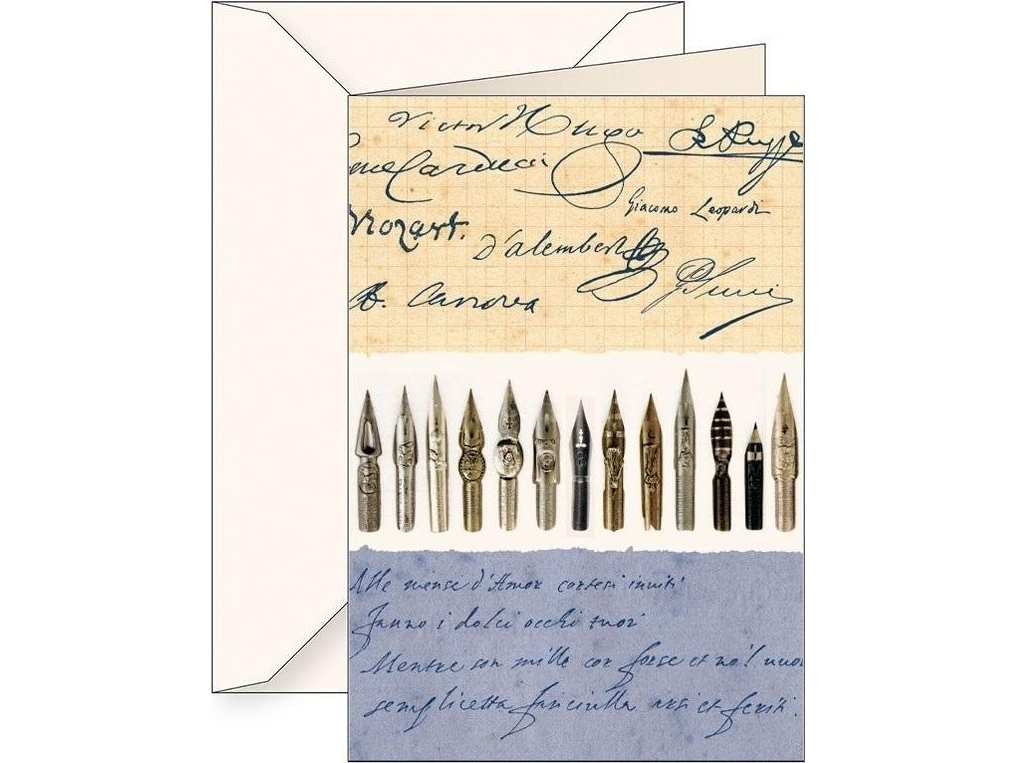 Victor Hugo
Carducci
Mozart.
Giacomo Leopardi
d'alembert
A. Canova
Alle mense d'Amor cortesi inviti
Fanno i dolci occhi tuoi
Mentre son mille cor forse et no'l vuoi
semplicetta fanciulla arsi et feriti.